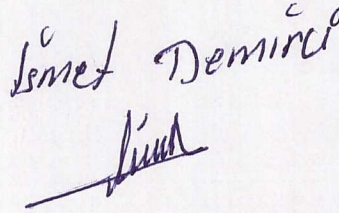 İsmet Demirci